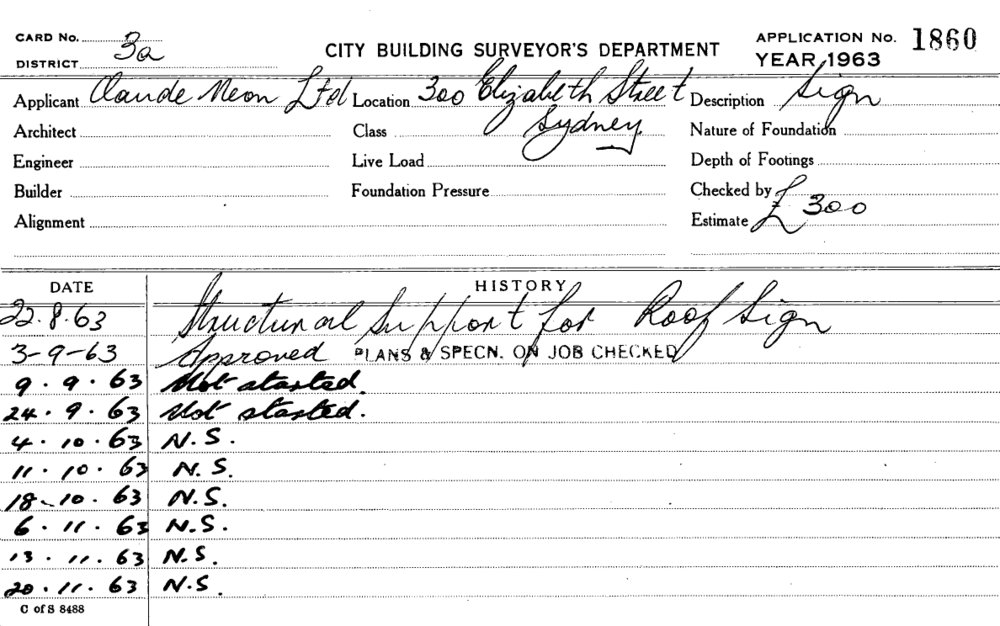 CARD No. 3a CITY BUILDING SURVEYOR'S DEPARTMENT APPLICATION No. 1860
DISTRICT YEAR 1963
Applicant Claude Neon Ltd Location 300 Elizabeth Street Description Sign
Architect Class Sydney Nature of Foundation
Engineer Live Load Depth of Footings
Builder Foundation Pressure Checked by
Alignment Estimate £300
DATE HISTORY
22.8.63 Structural Support for Roof Sign
3-9-63 Approved PLANS & SPECN. ON JOB CHECKED
9.9.63 Not started.
24.9.63 Not started.
4.10.63 N.S.
11.10.63 N.S.
18.10.63 N.S.
6.11.63 N.S.
13.11.63 N.S.
20.11.63 N.S.
C of S 8488